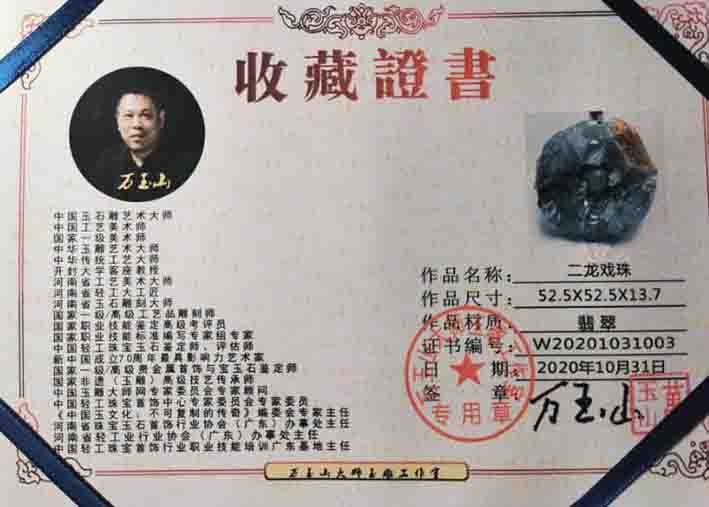 收藏證書
万玉山
中国玉石雕艺术大师
中国工艺美术师
国家一级美术师
中华玉雕艺术大师
中华传统工艺大师
开封大学客座教授
河南省工艺美术大师
河南省轻工大工匠
河南省玉石雕刻大师
国家一级/高级工艺品雕刻师
国家职业技能鉴定高级考评员
国家职业技能标准编写专家组专家
中国轻工珠宝玉石鉴定师、评估师
新中国成立70周年最具影响力艺术家
国家一级/高级贵金属首饰与宝玉石鉴定师
国家非遗（玉雕）高级技艺传承师
中国玉雕大师网专家委员会专家顾问
中国轻工珠宝首饰中心专家委员会专家委员
《中国玉文化，不可复制的传奇》编委会专家主任
河南省珠宝玉石首饰行业协会（广东）办事处主任
河南省轻工业行业协会（广东）办事处主任
中国轻工珠宝首饰行业职业技能培训广东基地主任
作品名称：二龙戏珠
作品尺寸：52.5X52.5X13.7
作品材质：翡翠
证书编号：W20201031003
日期：2020年10月31日
签章：万玉山
专用章
万玉山大师玉雕工作室